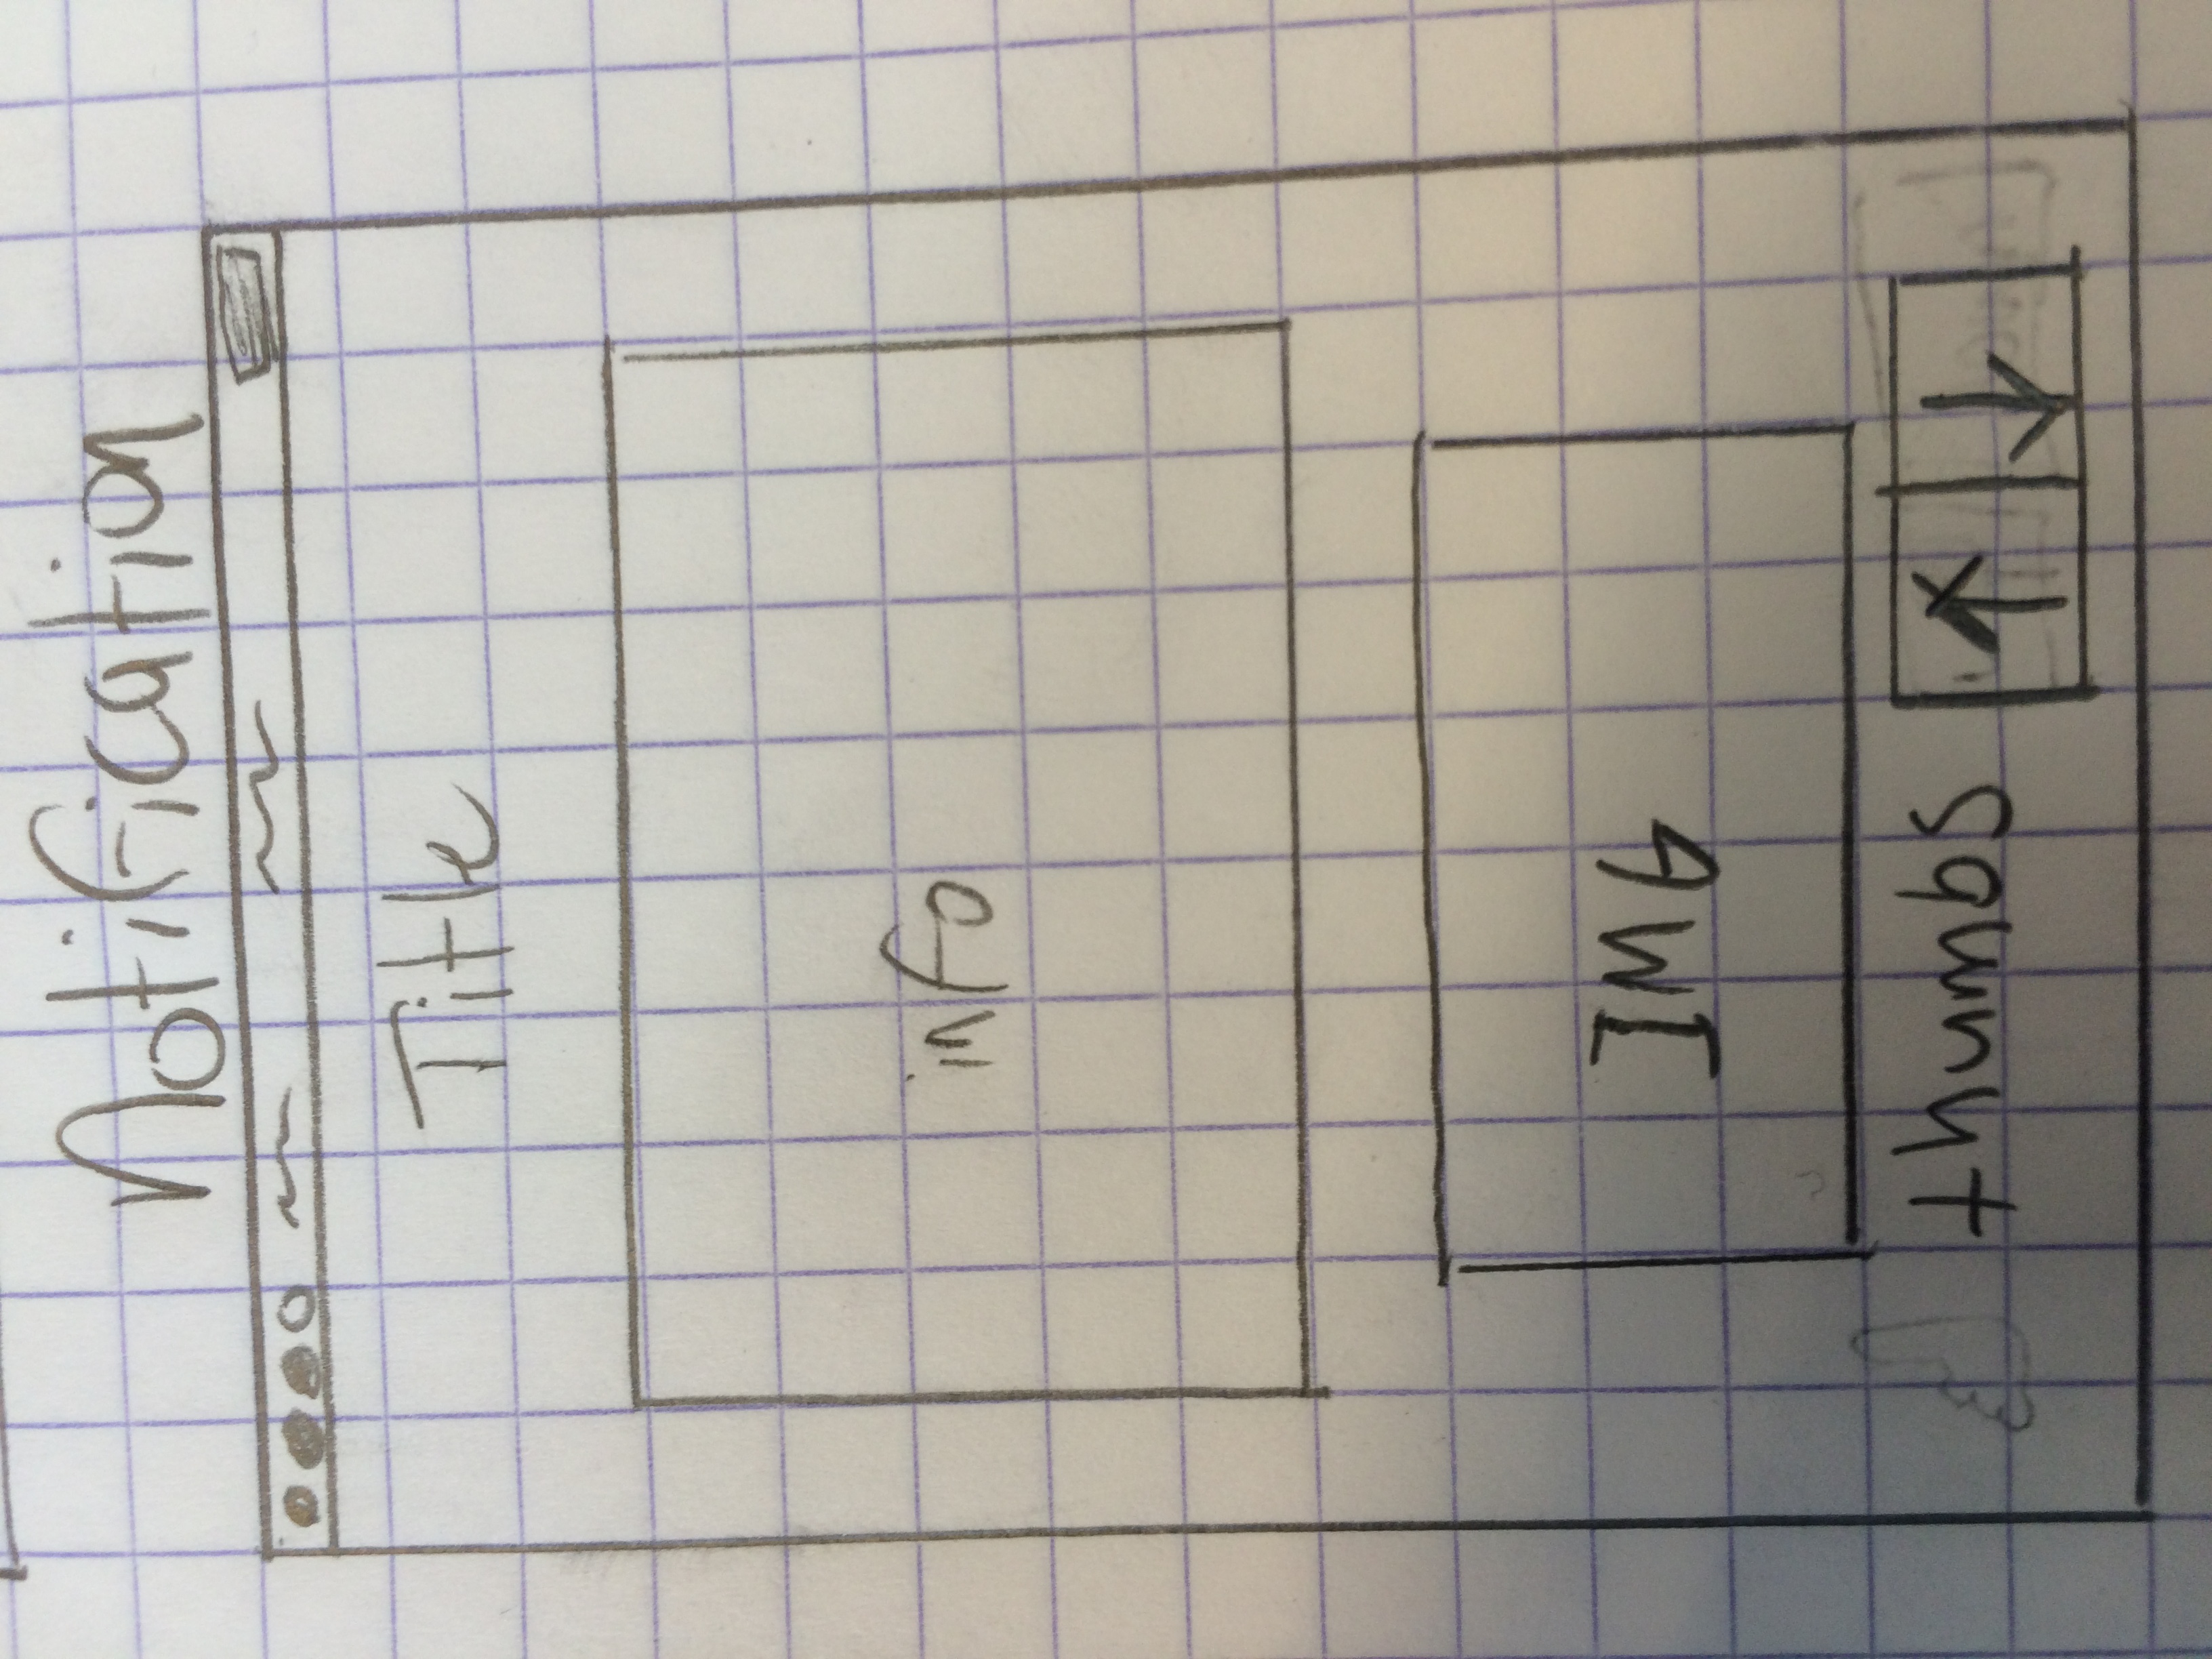 Notification
Title
info
IMG
thumbs